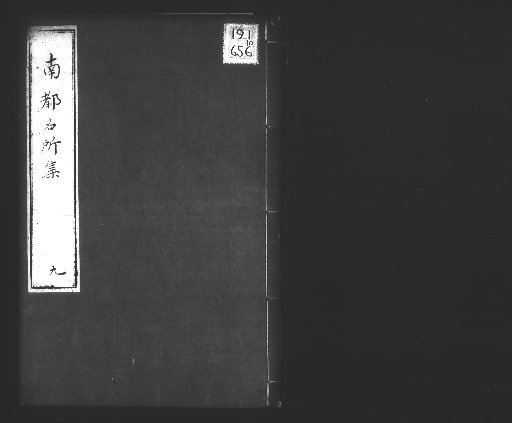 南都名所集
九
191
10
656